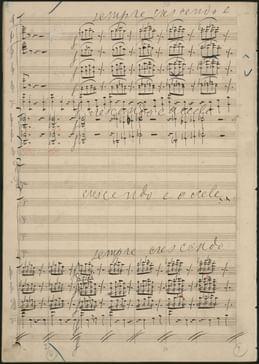 sempre crescendo e
crescendo e accele
crescendo e accele
sempre crescendo